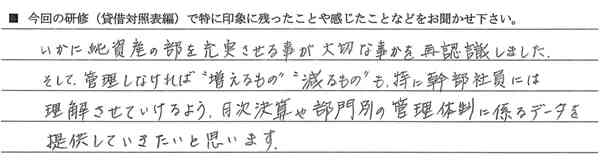 ■ 今回の研修（貸借対照表編）で特に印象に残ったことや感じたことなどをお聞かせ下さい。
いかに純資産の部を充実させる事が大切な事かを再認識しました。
そして、管理しなければ"増えるもの""減るもの"も、特に幹部社員には
理解させていけるよう、月次決算や部門別の管理体制に係るデータを
提供していきたいと思います。